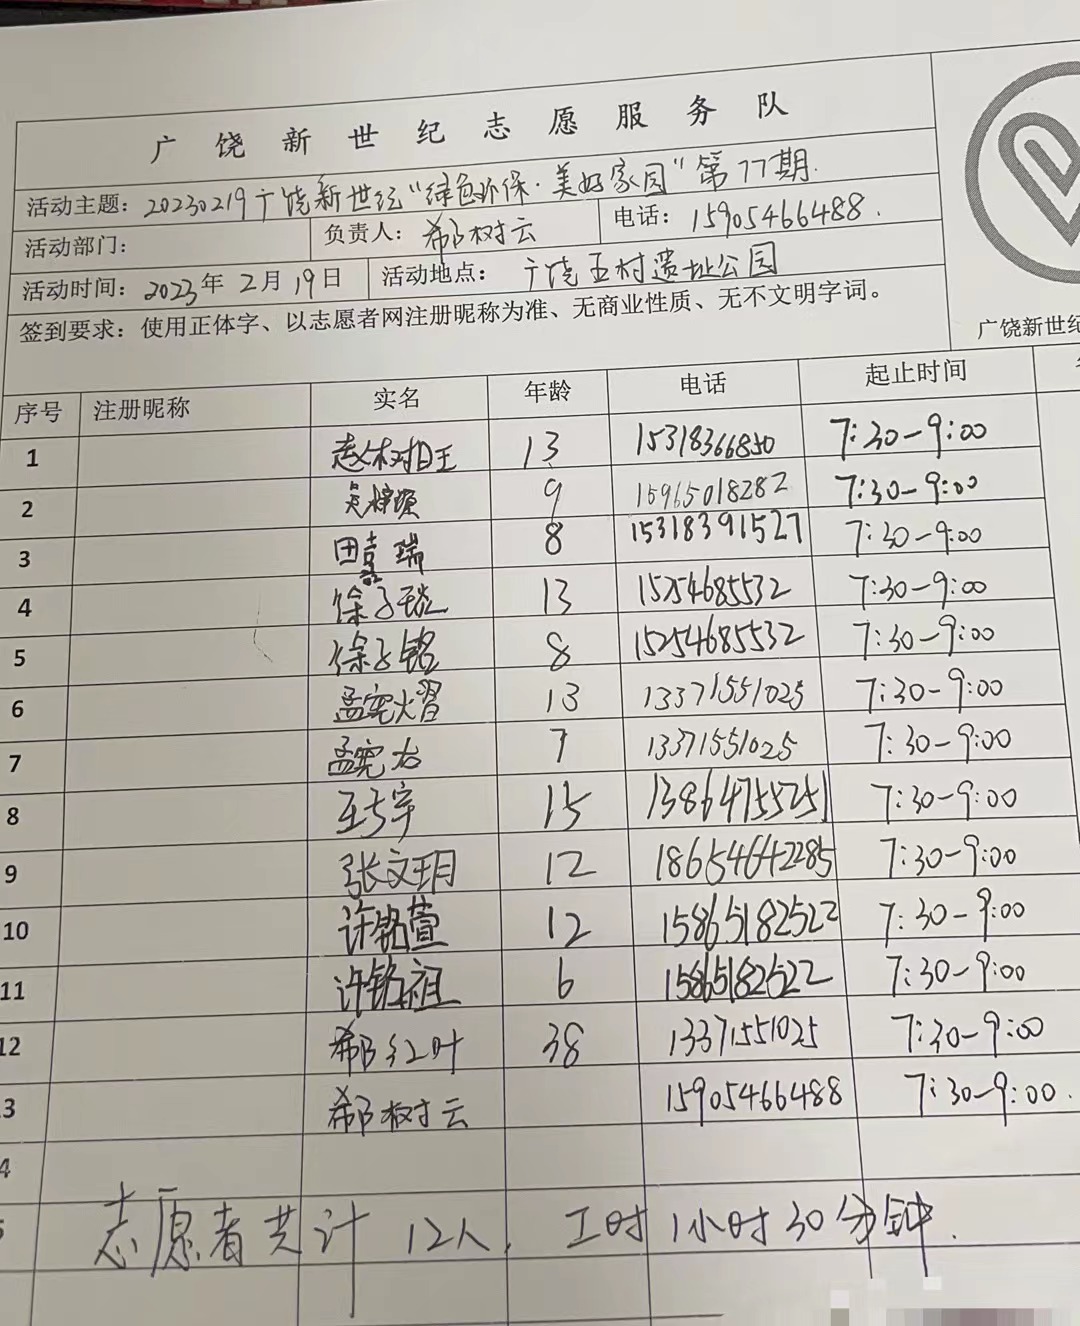 广饶新世纪志愿服务队
活动主题: 20230219广饶新世纪“绿色环保·美好家园”第77期.
活动部门: 负责人: 郗树云 电话: 15905466488.
活动时间: 2023年2月19日 活动地点: 广饶五村遗址公园
签到要求: 使用正体字、以志愿者网注册昵称为准、无商业性质、无不文明字词。
广饶新世纪
序号 注册昵称 实名 年龄 电话 起止时间
1 13 15318366850 7:30-9:00
2 9 15965018282 7:30-9:00
3 田嘉瑞 8 15318391527 7:30-9:00
4 徐子琰 13 15254685532 7:30-9:00
5 徐子铭 8 15254685532 7:30-9:00
6 孟宪熠 13 13371551025 7:30-9:00
7 孟宪右 7 13371551025 7:30-9:00
8 15 13864755251 7:30-9:00
9 张文玥 12 18654642285 7:30-9:00
10 许铭萱 12 15865182522 7:30-9:00
11 许铭祖 6 15865182522 7:30-9:00
12 郗红叶 38 13371551025 7:30-9:00
3 郗树云 15905466488 7:30-9:00.
4
志愿者共计12人, 工时1小时30分钟.